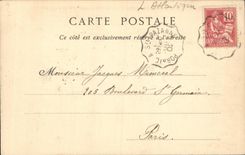 L'Atlantique
CARTE POSTALE
Ce côté est exclusivement réservé à l'adresse
10
Monsieur Jacques
202 Boulevard St Germain
Paris.